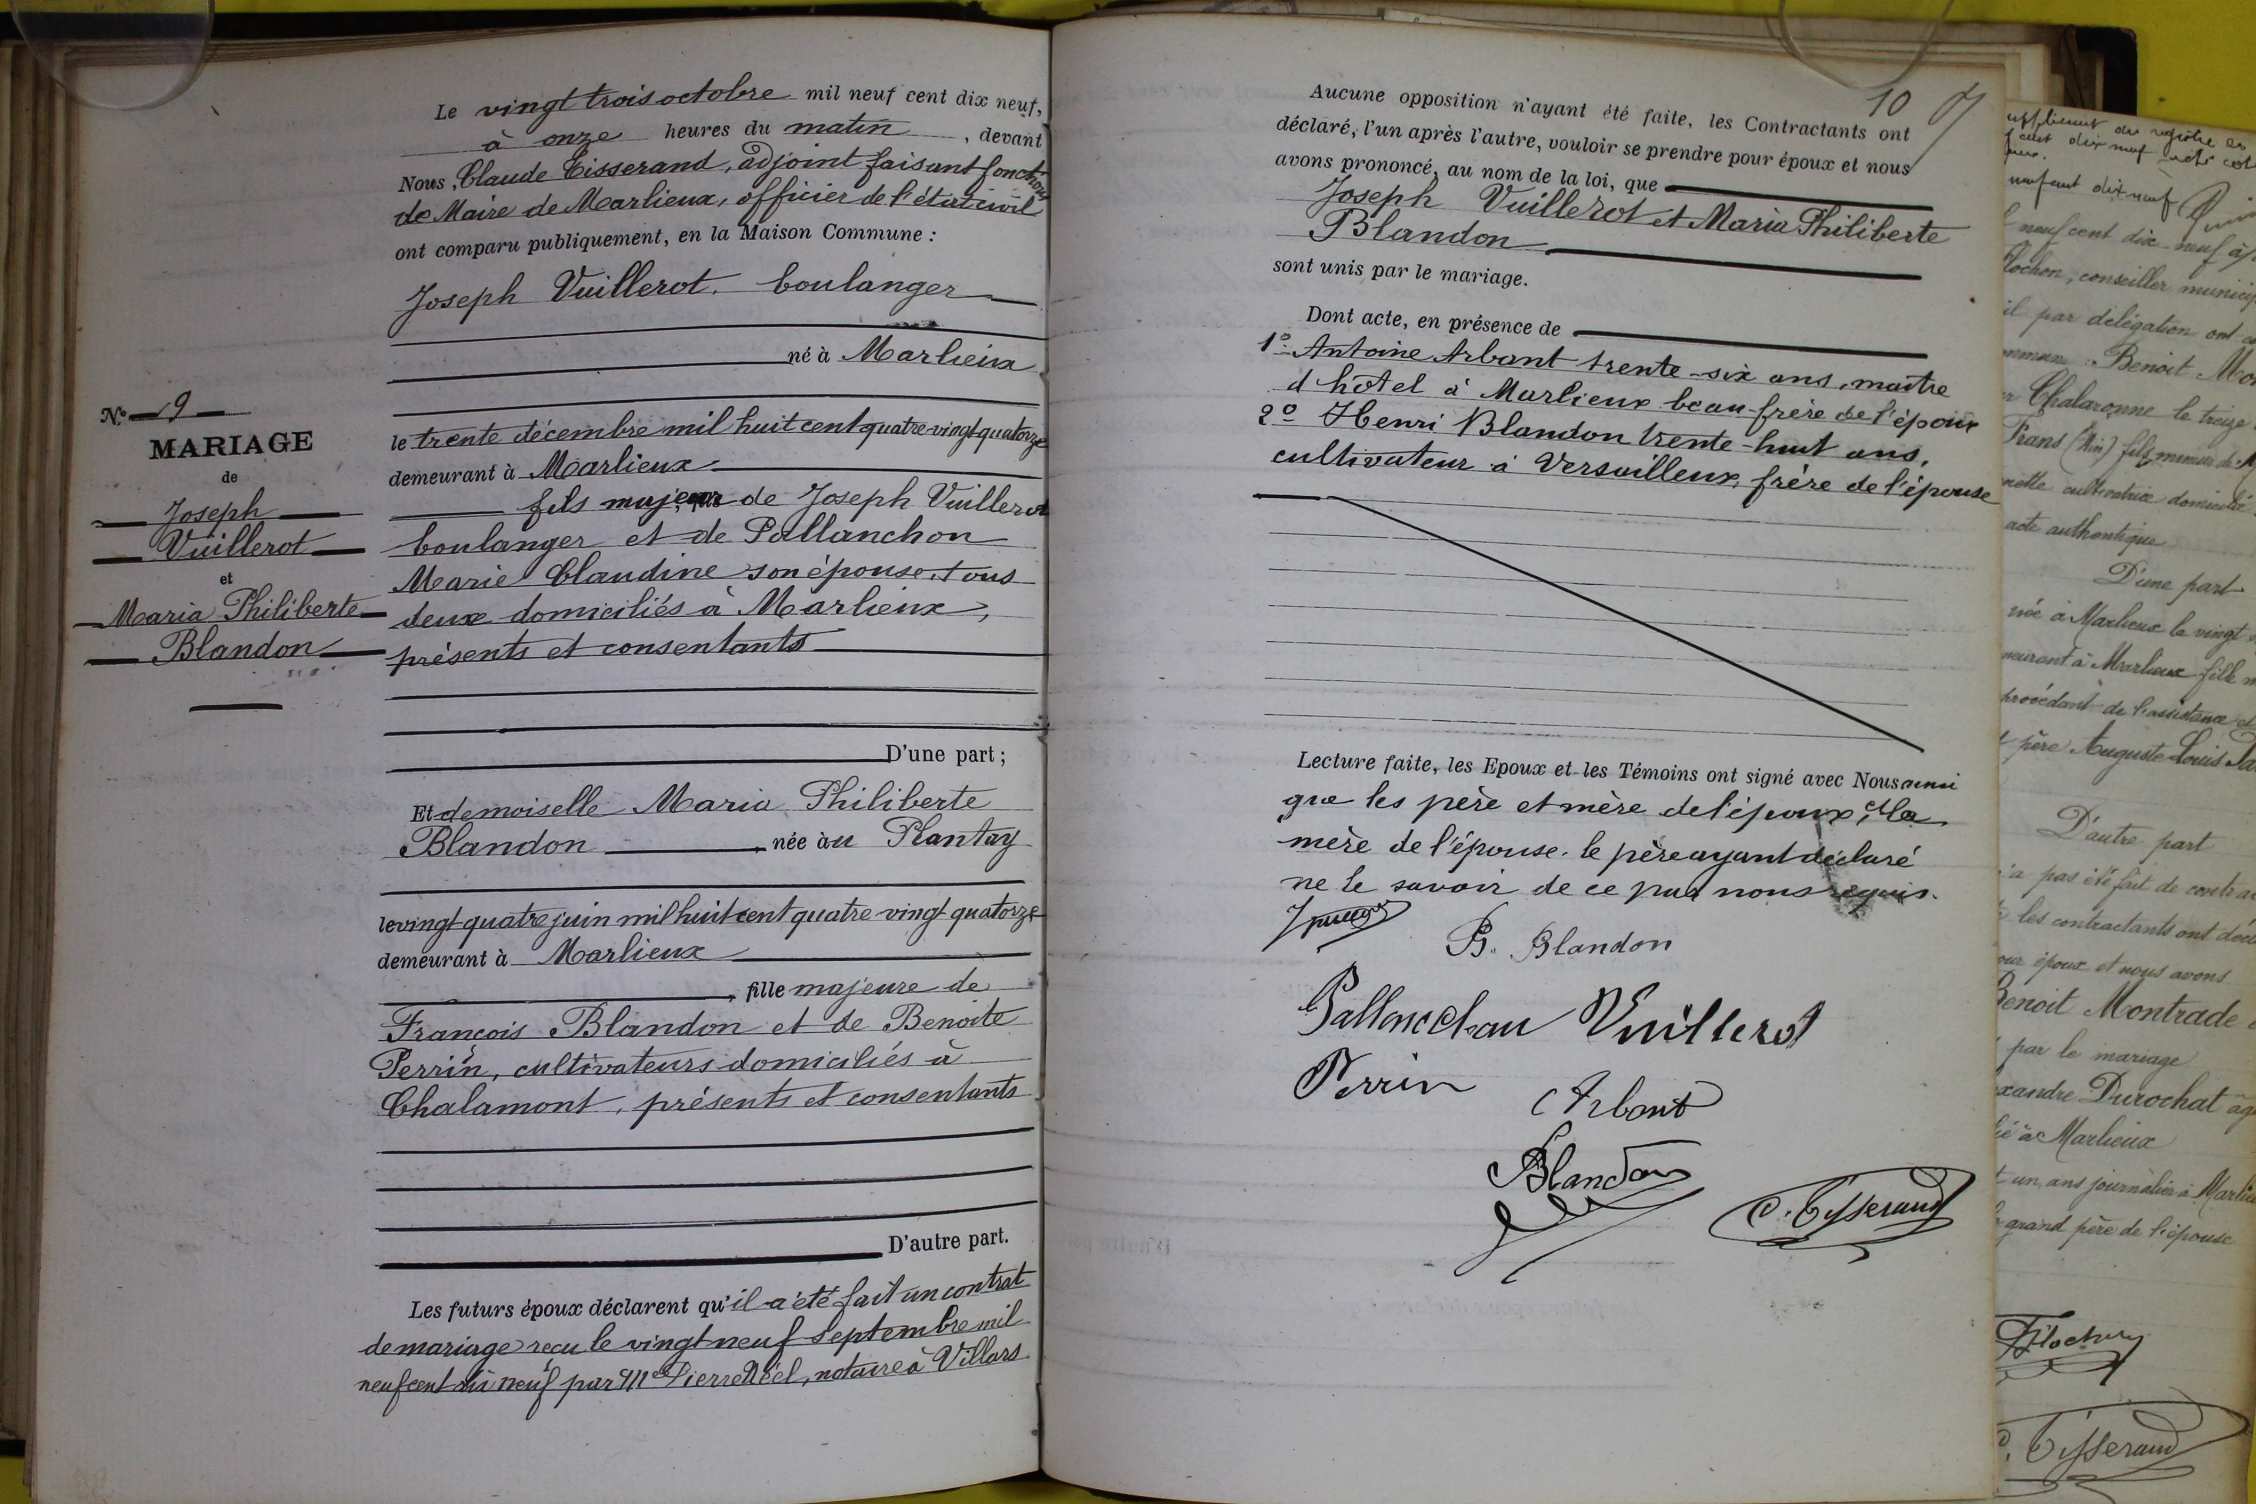 Le vingt trois octobre mil neuf cent dix neuf,
à onze heures du matin , devant
Nous, Claude Tisserand, adjoint faisant fonctions
de Maire de Marlieux, officier de l'état civil
ont comparu publiquement, en la Maison Commune :
Joseph Vuillerot. boulanger
né à Marlieux
le trente décembre mil huit cent quatre-vingt quatorze
demeurant à Marlieux
fils majeur de Joseph Vuillerot
boulanger et de Pallanchon
Marie Claudine son épouse, tous
deux domiciliés à Marlieux,
présents et consentants
D'une part ;
N° 9
MARIAGE
de
Joseph
Vuillerot
et
Maria Philiberte
Blandon
Et demoiselle Maria Philiberte
Blandon née au Plantay
le vingt quatre juin mil huit cent quatre vingt quatorze
demeurant à Marlieux
, fille majeure de
François Blandon et de Benoite
Perrin, cultivateurs domiciliés à
Chalamont, présents et consentants
D'autre part.
Les futurs époux déclarent qu'il a été fait un contrat
de mariage reçu le vingt neuf septembre mil
neuf cent dix neuf par Me Pierre Noël, notaire à Villars
10
Aucune opposition n'ayant été faite, les Contractants ont
déclaré, l'un après l'autre, vouloir se prendre pour époux et nous
avons prononcé, au nom de la loi, que
Joseph Vuillerot et Maria Philiberte
Blandon
sont unis par le mariage.
Dont acte, en présence de
1° Antoine Arbant trente-six ans, maître
d'hôtel à Marlieux beau-frère de l'époux
2° Henri Blandon trente-huit ans,
cultivateur à Versailleux, frère de l'épouse
Lecture faite, les Epoux et les Témoins ont signé avec Nous ainsi
que les père et mère de l'époux, et la
mère de l'épouse. le père ayant déclaré
ne le savoir de ce par nous requis.
B. Blandon
Pallanchon Vuillerot
Perrin Arbant
Blandon
C. Tisserand
neuf cent dix neuf
neuf cent dix-neuf à
conseiller munici
il par délégation ont
Benoit Mon
Chalaronne le treize
Trans (Ain) fils mineur de
cultivatrice domiciliée
acte authentique
D'une part
née à Marlieux le vingt
meurant à Marlieux fille m
procédant de l'assistance et
père Auguste Louis
D'autre part
a pas été fait de contrat
les contractants ont décl
our époux et nous avons
Benoit Montrade
par le mariage
xandre Durochat âg
à Marlieux
un ans journalier à Marlieu
grand père de l'épouse
C. Tisserand